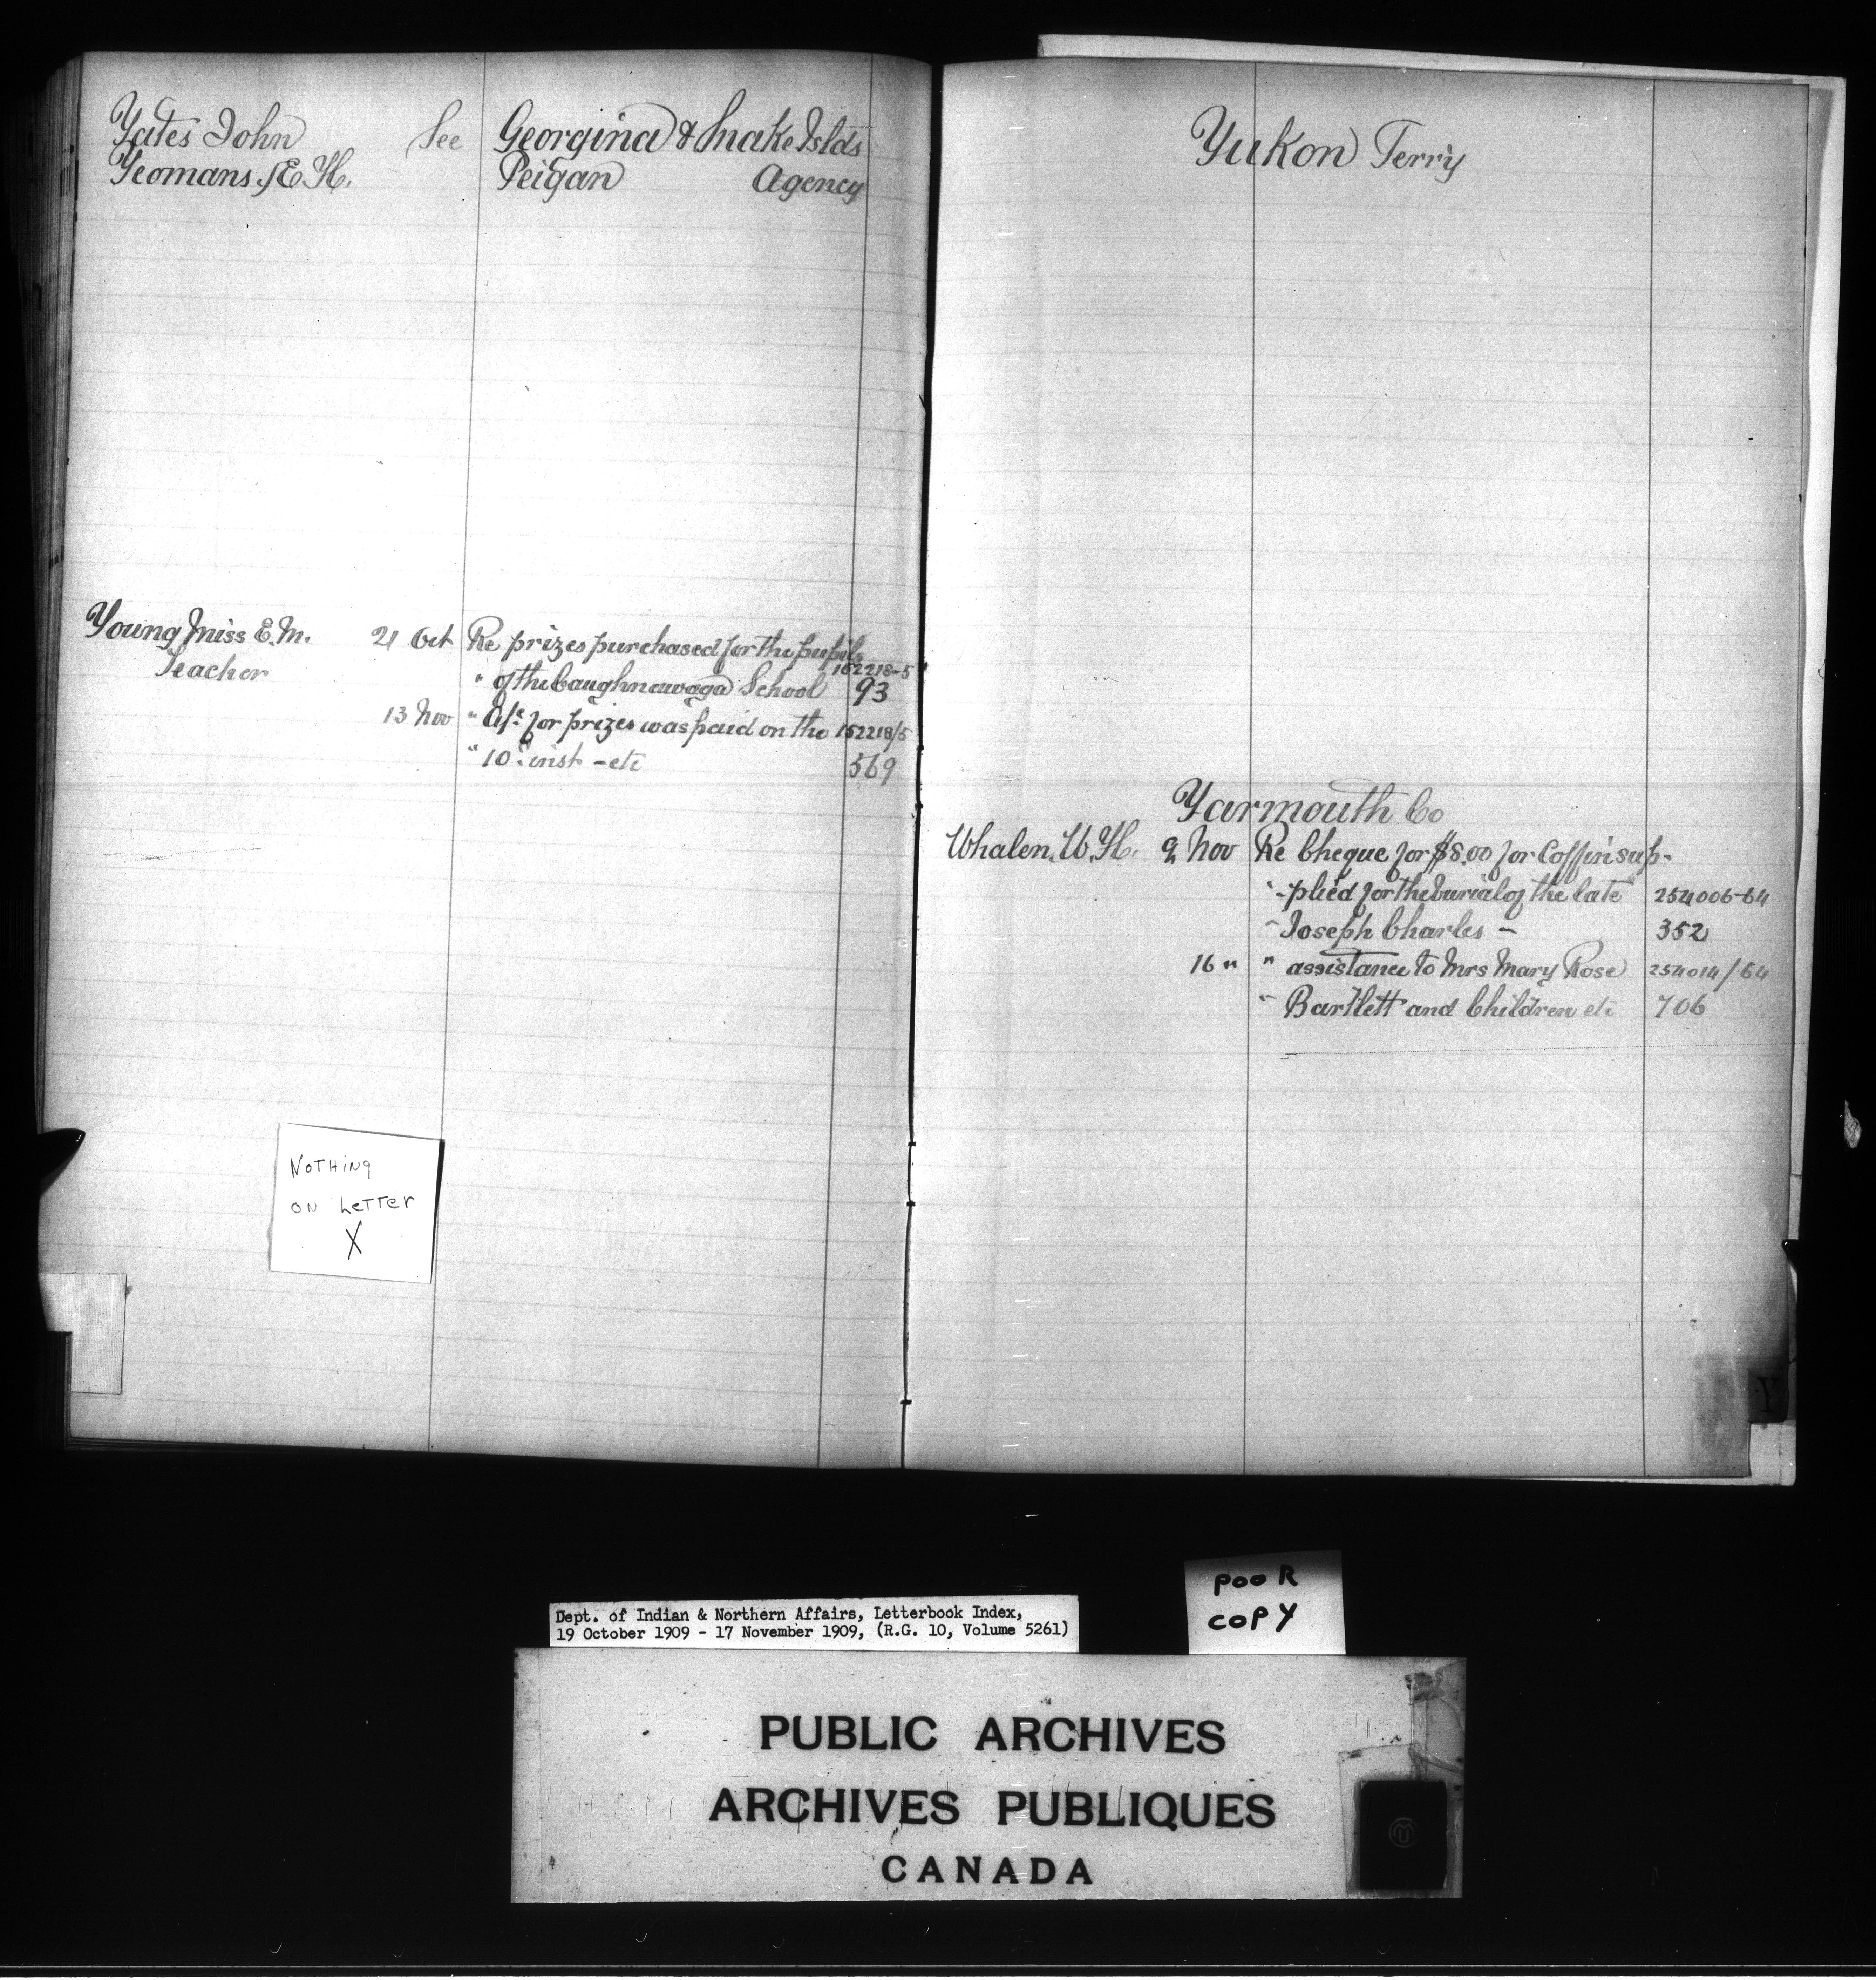 Yates John See Georgina & Snake Islds
Yeomans, E. H. Peigan Agency
Young Miss E. M. 21 Oct Re prizes purchased for the pupils
Teacher " of the Caughnawaga School 152218-5
93
13 Nov " a/c for prizes was paid on the 152218/5
" 10th inst - etc 569
Yukon Terry
Yarmouth Co
Whalen. W. H. 9 Nov Re Cheque for $8.00 for Coffin sup-
" -plied for the burial of the late 254006-64
" Joseph Charles - 352
16 " " assistance to Mrs Mary Rose 254014/64
" Bartlett and Children etc 706
NOTHING
ON LETTER
X
Y
Dept. of Indian & Northern Affairs, Letterbook Index,
19 October 1909 - 17 November 1909, (R.G. 10, Volume 5261)
POOR
COPY
PUBLIC ARCHIVES
ARCHIVES PUBLIQUES
CANADA